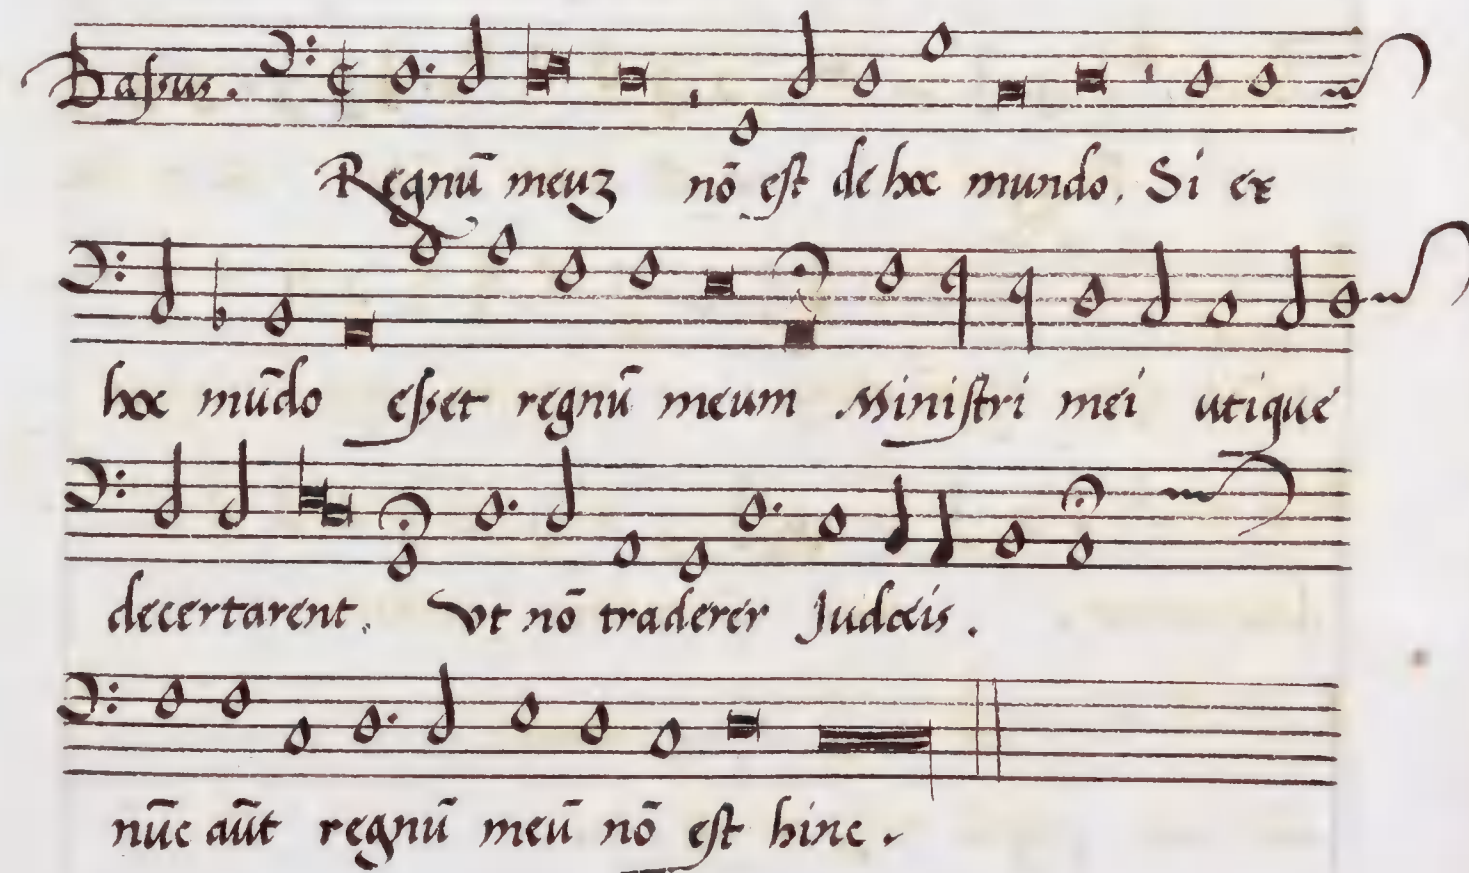 Bassus.
Regnū meuʒ nō est de hoc mundo. Si ex
hoc mūdo esset regnū meum Ministri mei utique
decertarent. Vt nō traderer Judæis.
nūc aūt regnū meū nō est hinc.